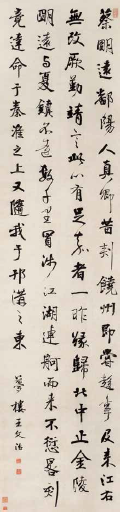 蔡明遠鄱陽人真卿昔刺饒州即嘗趨事及來江右
無改厥勤靖言此心有足嘉者一昨緣歸北中止金陵
明遠與夏鎮不遠數千里冒涉江湖連舸而來不愆晷刻
竟達命于秦淮之上又隨我于邗溝之東
夢樓王文治